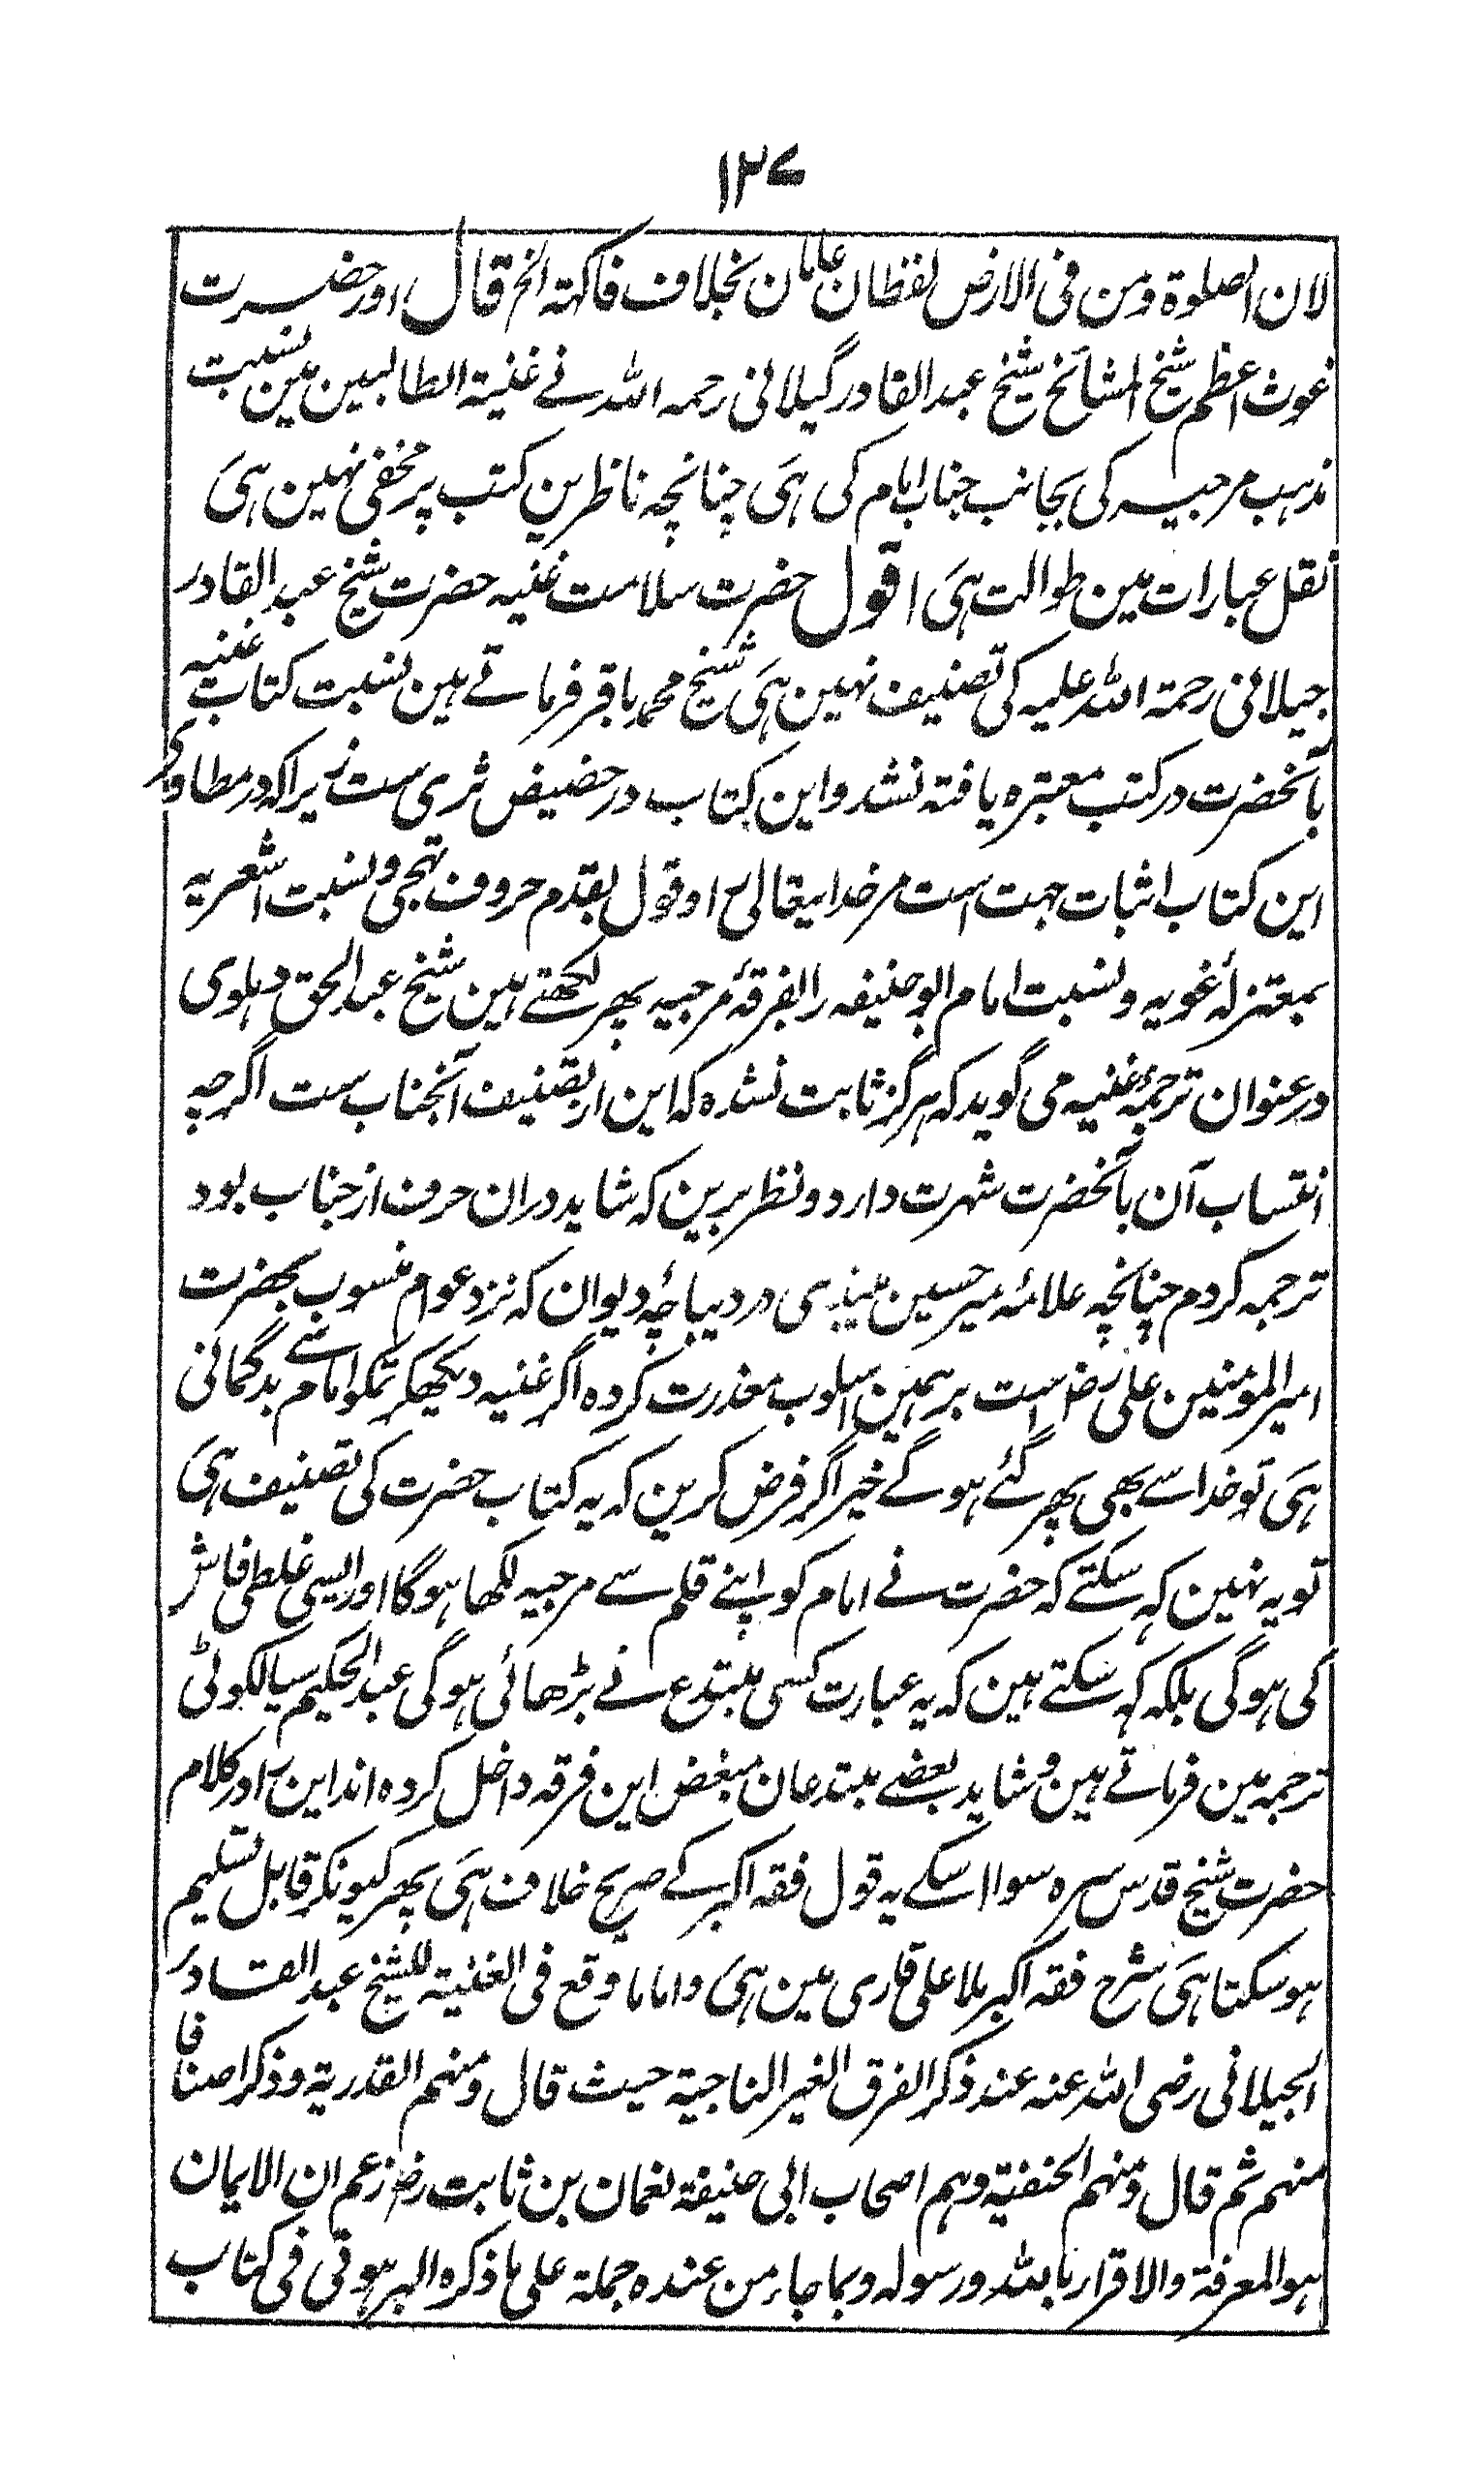 ۱۲۷
لان الصلوة ومن فی الارض لفظان عامان بخلاف فاکہتہ الخ قال اور حضرت
غوث اعظم شیخ المشائخ شیخ عبد القادر گیلانی رحمہ اللہ نے غنیۃ الطالبین مین نسبت
مذہب مرجیہ کی بجانب جناب امام کی ہی چنانچہ ناظرین کتب پر مخفی نہین ہی
نقل عبارات مین طوالت ہی اقول حضرت سلامت غنیہ حضرت شیخ عبد القادر
جیلانی رحمۃ اللہ علیہ کی تصنیف نہین ہی شیخ محمد باقر فرماتے ہین نسبت کتاب غنیہ
بآنحضرت در کتب معتبرہ یافتہ نشد و این کتاب در حضیض ثری ست زیراکہ در مطاوی
این کتاب اثبات جہت است مر خدایتعالی را و قول بقدم حروف تہجی و نسبت اشعریہ
بمعتزلۂ غویہ و نسبت امام ابو حنیفہ را بفرقۂ مرجیہ پھر لکھتے ہین شیخ عبد الحق دہلوی
در عنوان ترجمۂ غنیہ می گوید کہ ہرگز ثابت نشدہ کہ این از تصنیف آنجناب ست اگرچہ
انتساب آن بآنحضرت شہرت دارد و نظر برین کہ شاید دران حرف از جناب بود
ترجمہ کردم چنانچہ علامہ میر حسین میبذی در دیباچۂ دیوان کہ نزد عوام منسوب بحضرت
امیر المؤمنین علی رض است بر ہمین اسلوب معذرت کردہ اگر غنیہ دیکھکر تمکو امام سے بدگمانی
ہی تو خدا سے بھی پھر گئے ہو گے خیر اگر فرض کرین کہ یہ کتاب حضرت کی تصنیف ہی
تو یہ نہین کہ سکتے کہ حضرت نے امام کو اپنے قلم سے مرجیہ لکھا ہو گا اور ایسی غلطی فاش
کی ہو گی بلکہ کہ سکتے ہین کہ یہ عبارت کسی مبتدع نے بڑھائی ہو گی عبد الحکیم سیالکوٹی
ترجمہ مین فرماتے ہین و شاید بعضے مبتدعان مبغض این فرقہ داخل کردہ اند این را در کلام
حضرت شیخ قدس سرہ سوا اسکے یہ قول فقہ اکبر کے صریح خلاف ہی پھر کیونکر قابل تسلیم
ہو سکتا ہی شرح فقہ اکبر ملا علی قاری مین ہی واما ما وقع فی الغنیۃ للشیخ عبد القادر
الجیلانی رضی اللہ عنہ عند ذکر الفرق الغیر الناجیۃ حیث قال ومنہم القدریۃ وذکر اصنافا
منہم ثم قال ومنہم الحنفیۃ وہم اصحاب ابی حنیفۃ نعمان بن ثابت رض زعم ان الایمان
ہو المعرفۃ والاقرار باللہ ورسولہ وبما جاء من عندہ جملۃ علی ما ذکرہ البرہوتی فی کتاب